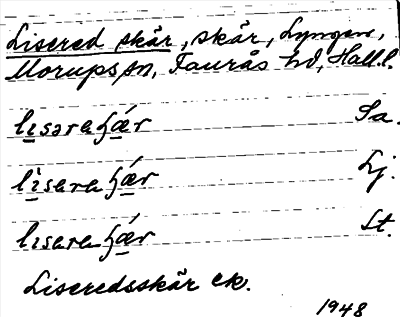 Lisered skär, skär, Lyngen,
Morups sn, Faurås hd, Hall.l.
lısəraɧǽr Sa.
lìsaraɧǽr Lj.
lısaraɧǽr St.
Liseredsskär ek.
1948